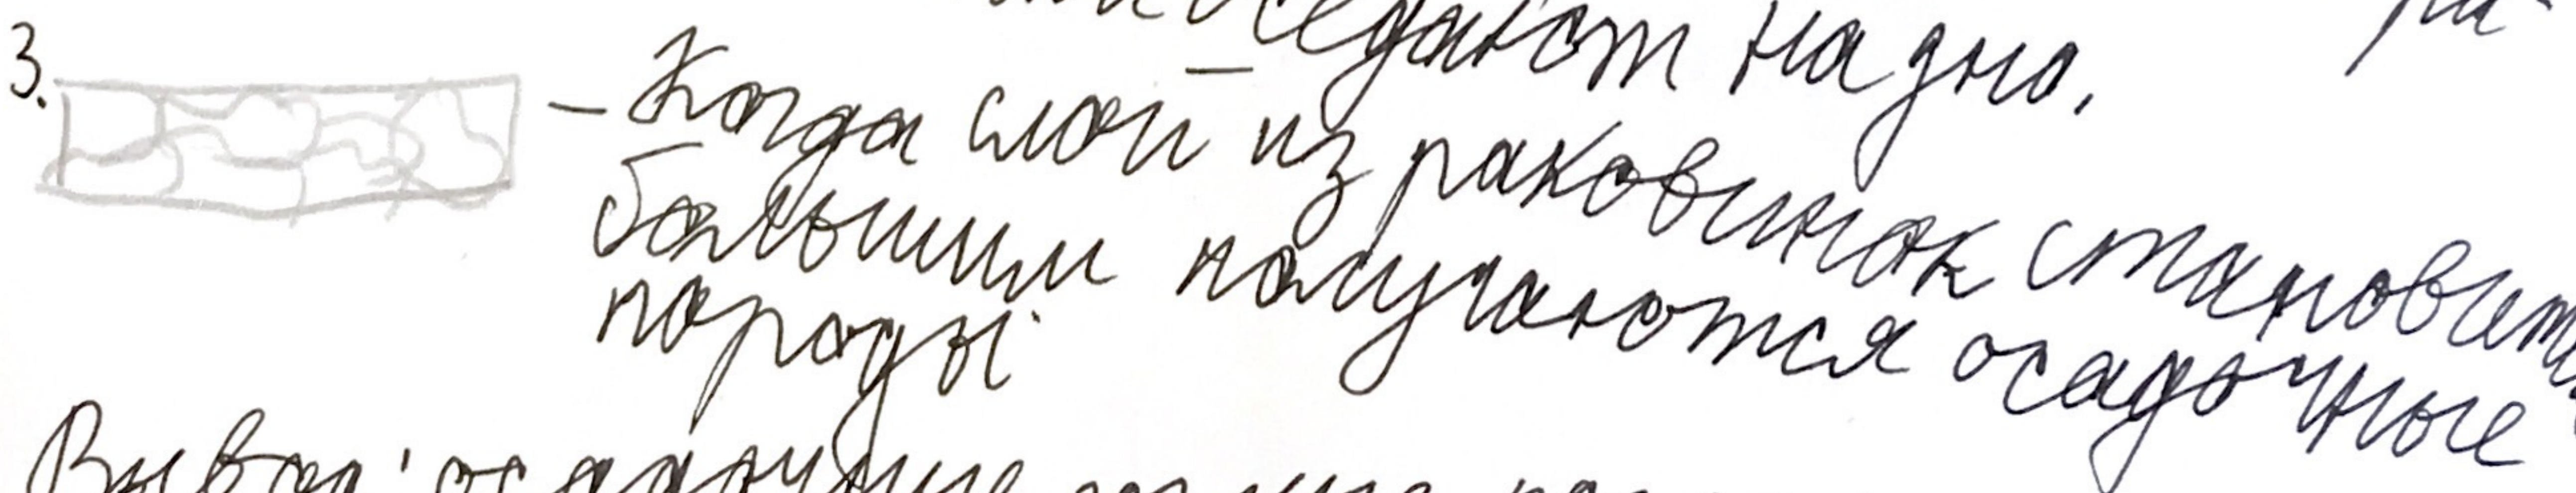 оседают на дно.
3. – Когда слой из раковинок становится
большим получаются осадочные
породы.
Вывод: осадочные